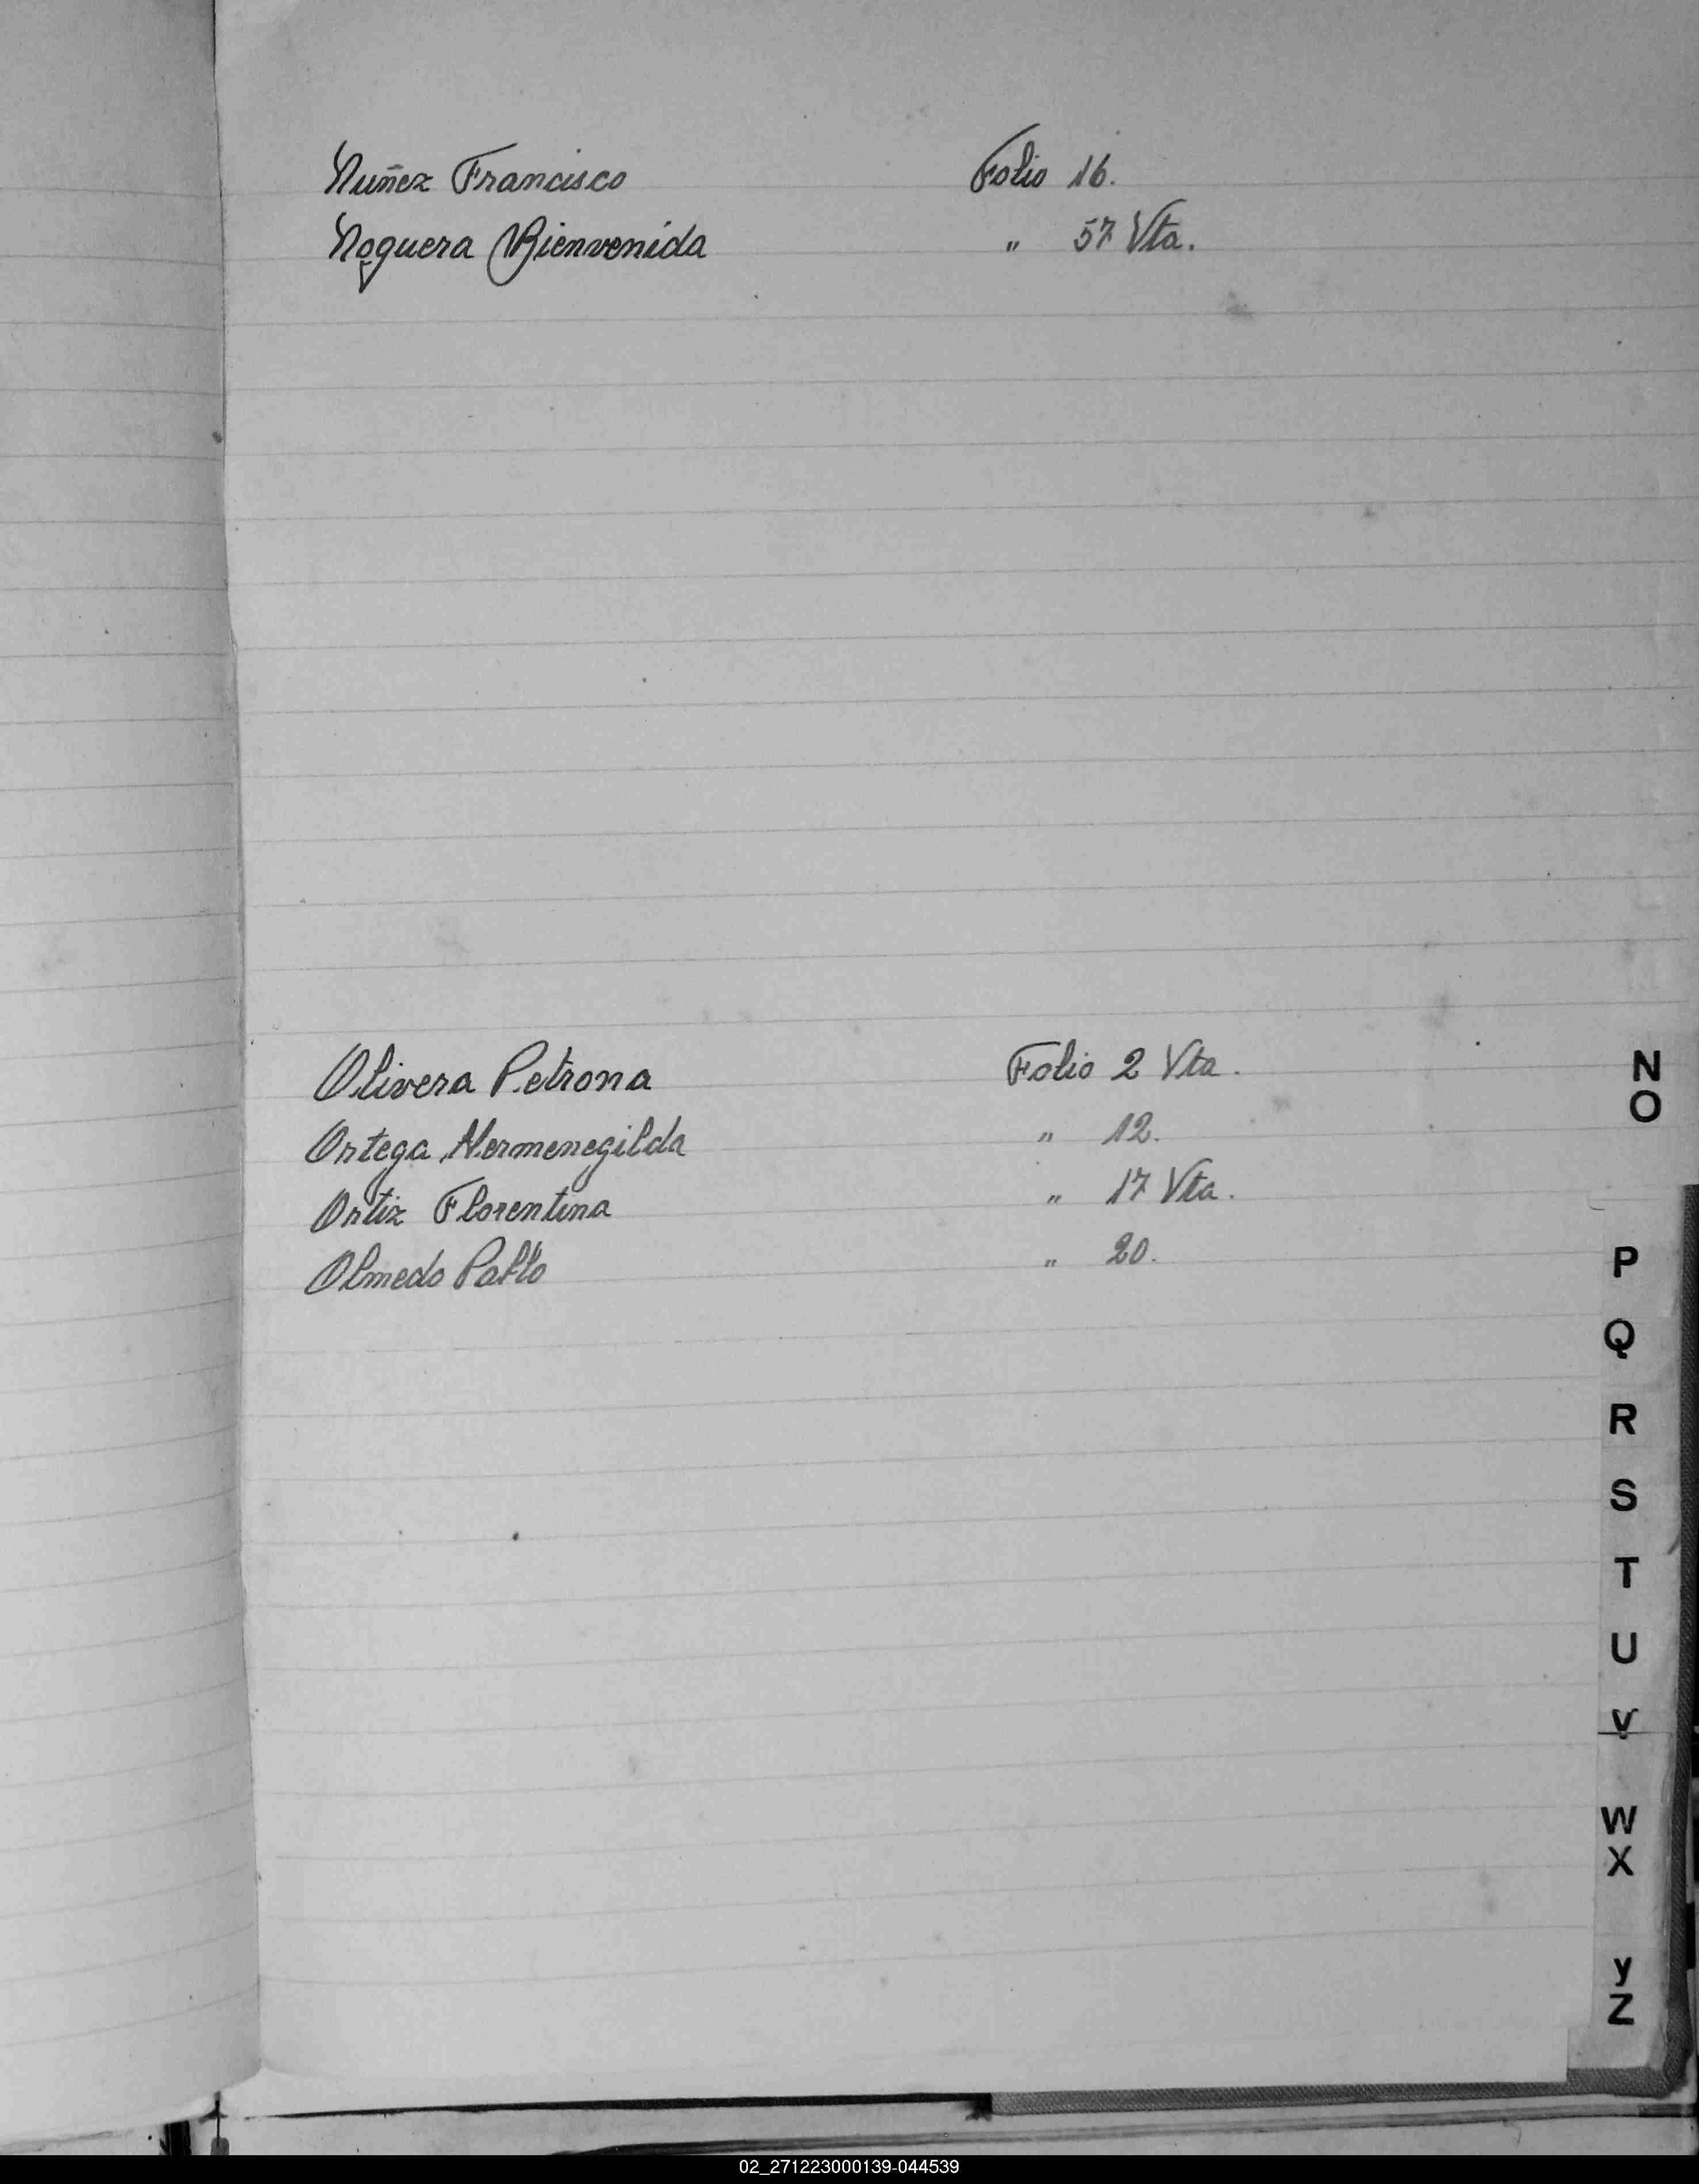 Nuñez Francisco Folio 16.
Noguera Bienvenida " 57 Vta.
Olivera Petrona Folio 2 Vta.
Ortega Hermenegilda " 12.
Ortiz Florentina " 17 Vta.
Olmedo Pablo " 20.
N
O
P
Q
R
S
T
U
V
W
X
Y
Z
02_271223000139-044539